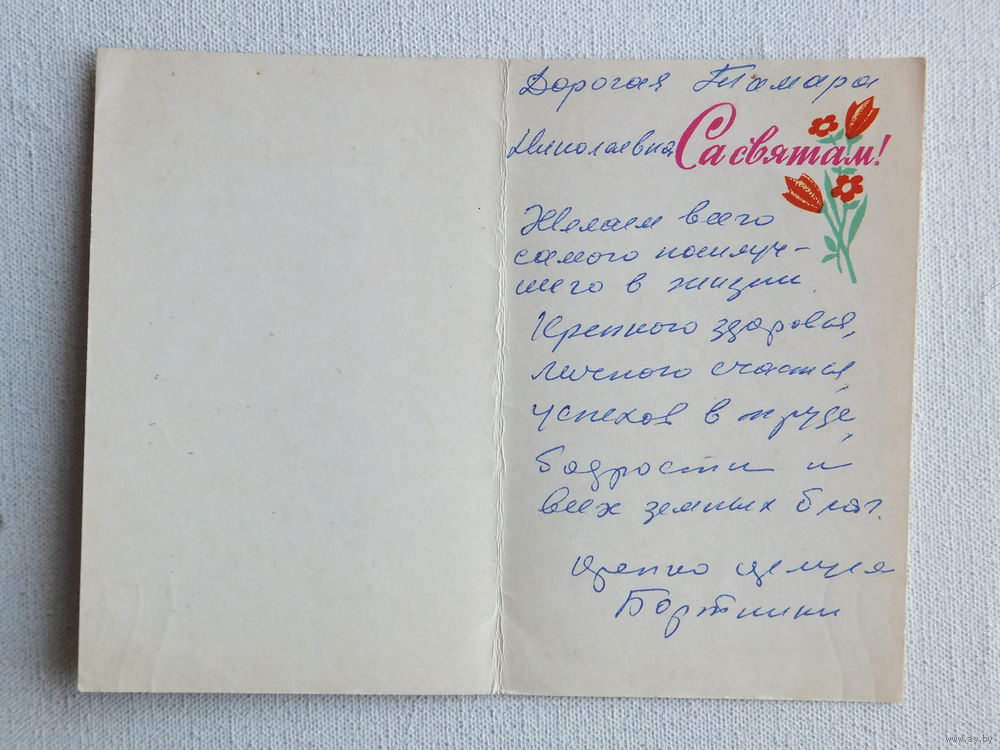 Дорогая Тамара
Николаевна
Са святам!
Желаем всего
самого наилуч-
шего в жизни.
Крепкого здоровья,
личного счастья,
успехов в труде,
бодрости и
всех земных благ.
Крепко целуем
Бортники
www.ay.by